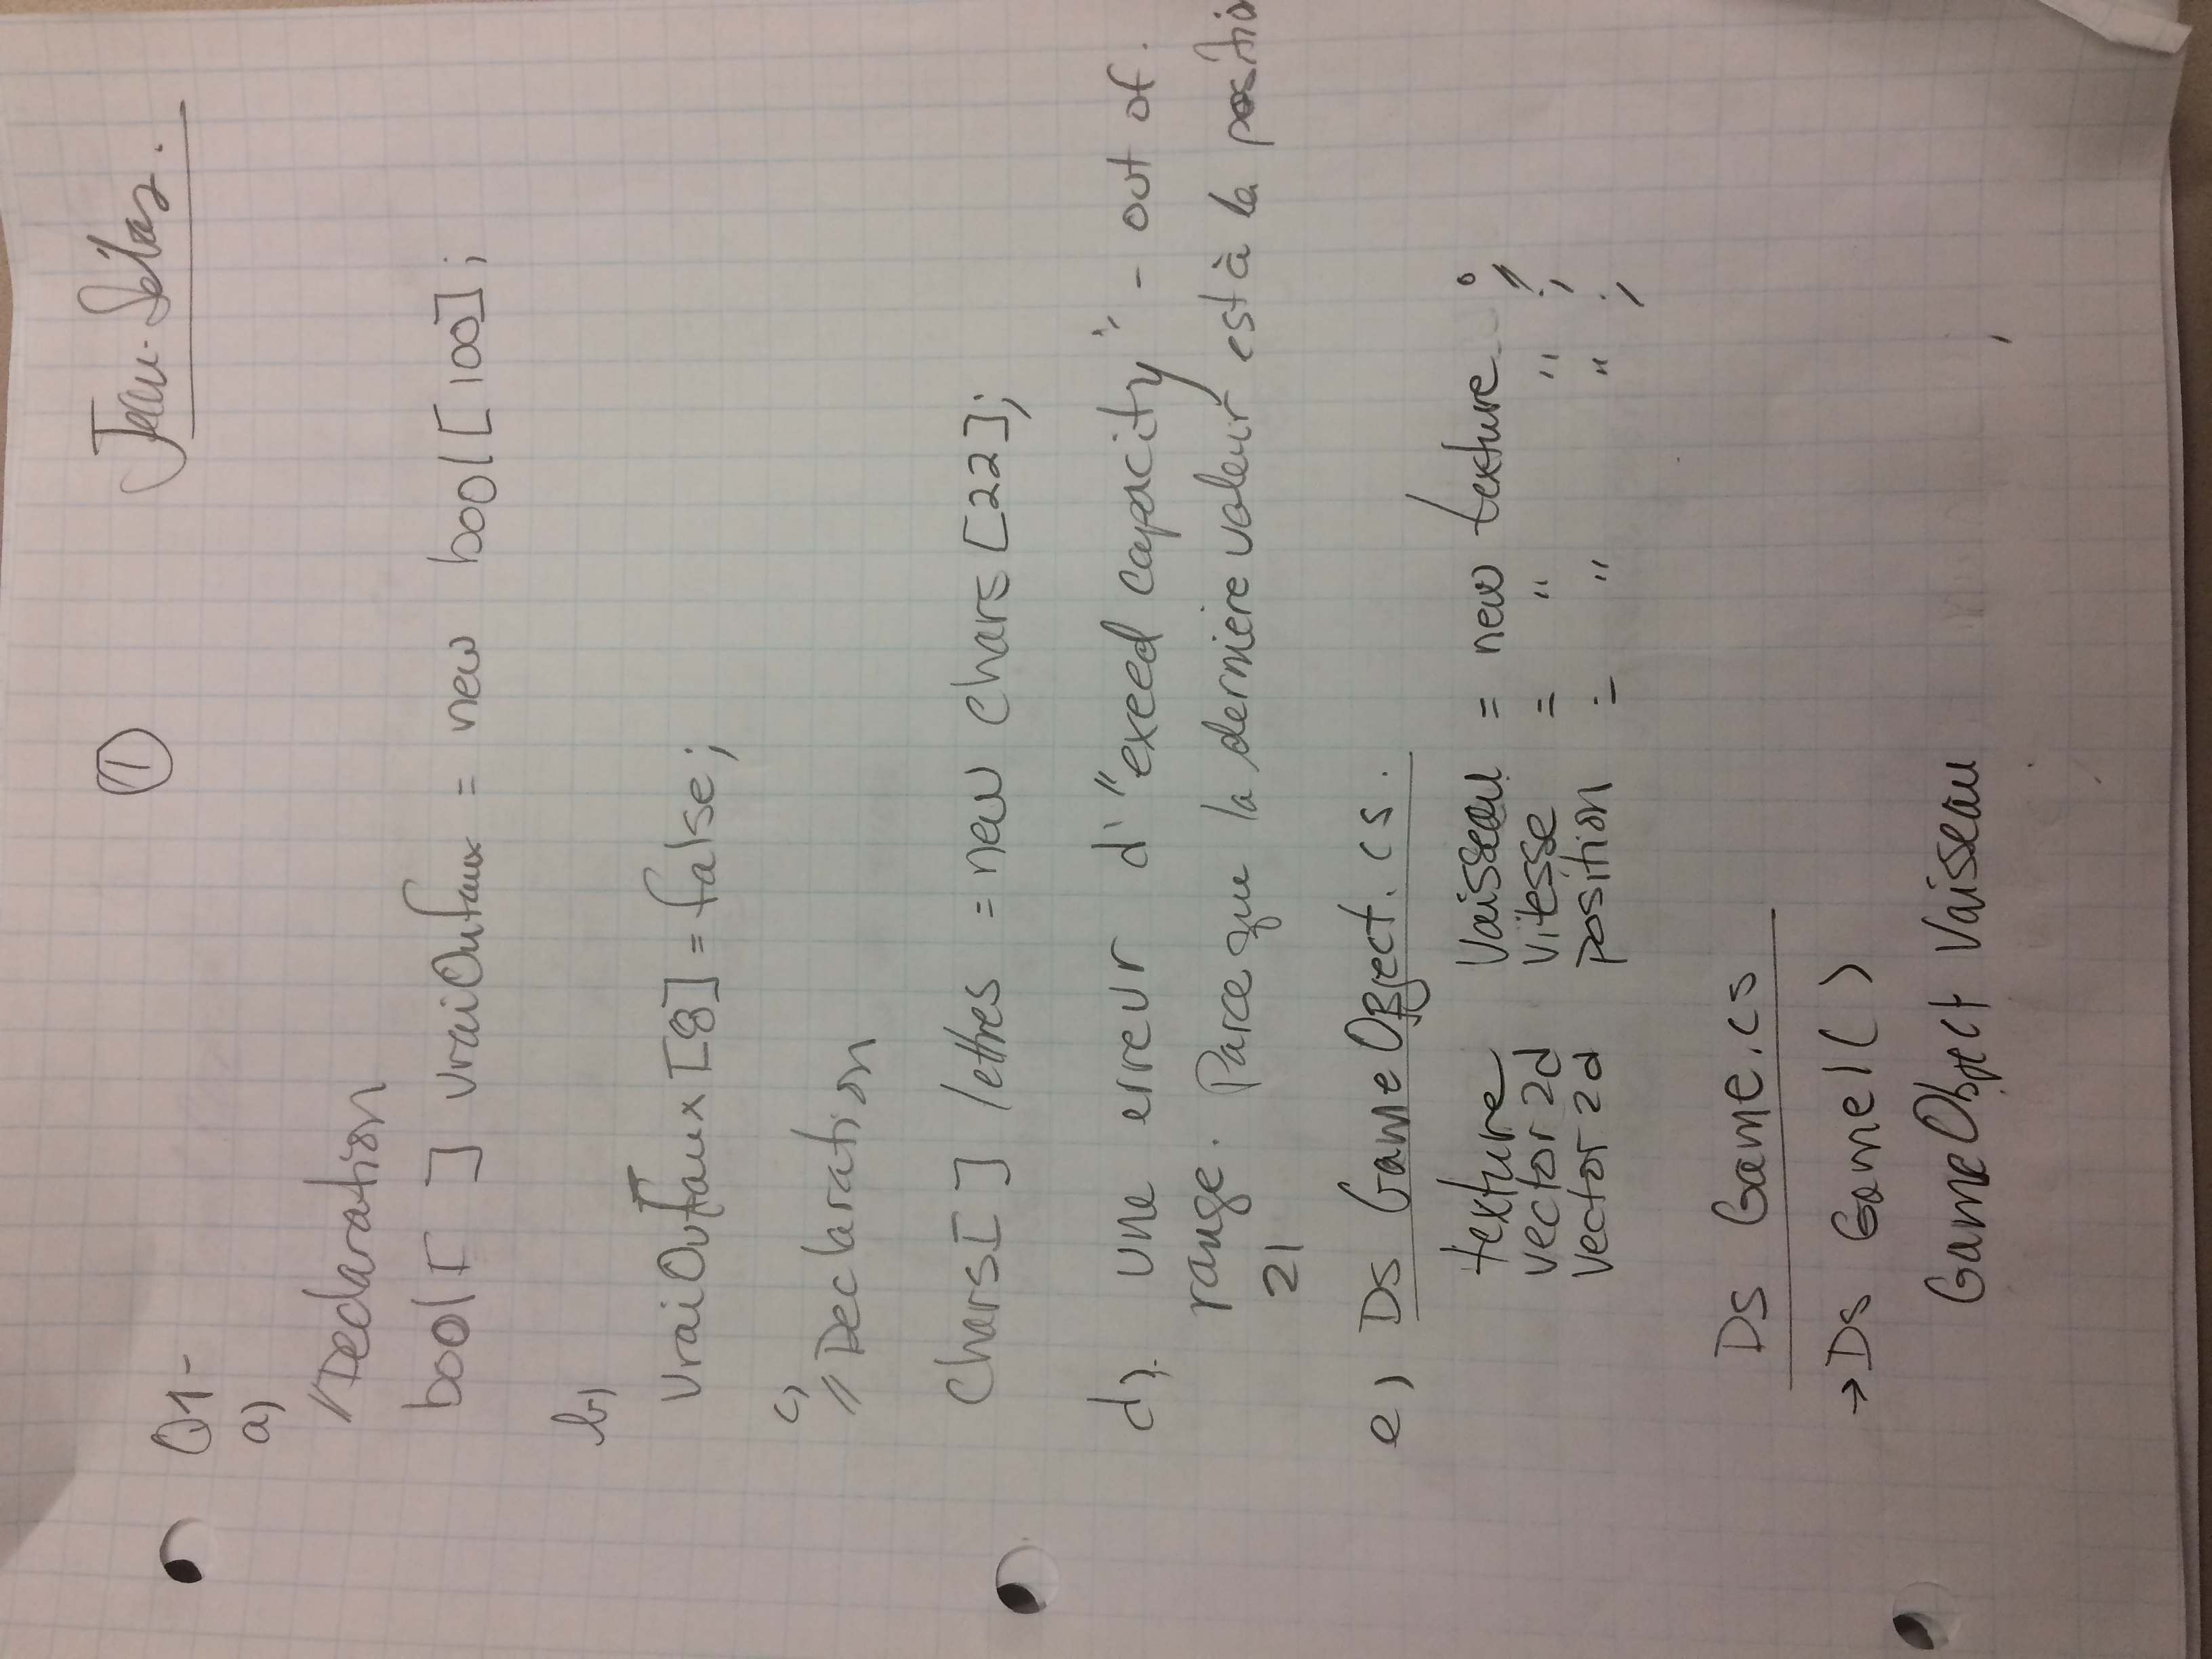 ① Jean-Sébas.
Q1-
a)
//Declaration
bool[ ] vraiOufaux = new bool[100];
b)
vraiOuFaux[8] = false;
c)
//Declaration
Chars[ ] lettres = new chars[22];
d). une erreur d'"exeed capacity" - out of.
range. Parce que la dernière valeur est à la positio
21
e) Ds GameObject.cs.
texture Vaisseau = new texture ;
vector2d vitesse = " " ;
vector2d position = " " ;
Ds Game.cs
→ Ds Game1( )
GameObject Vaisseau